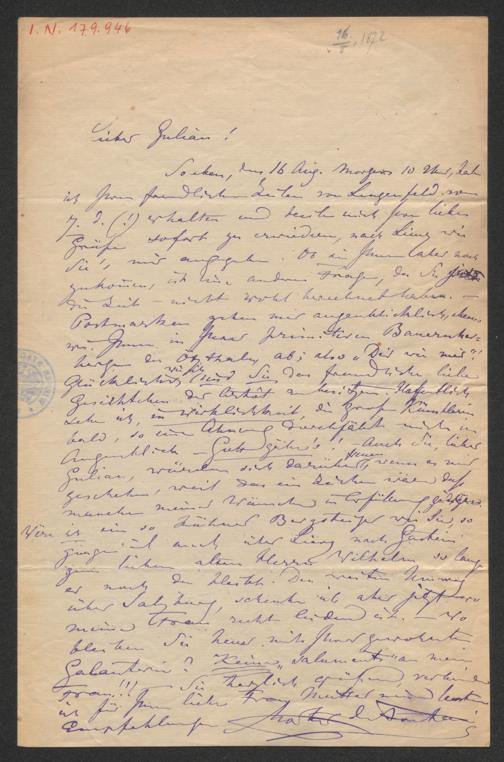 I.N. 179.946
16/8, 1872
Lieber Julian!
Soeben, den 16 Aug. Morgens 10 Uhr, habe
ich Ihre freundlichen Zeilen von Lengenfeld vom
7. d. (!) erhalten und beeile mich Ihre lieben
Grüße sofort zu erwiedern, nach Lienz wie
Sie's mir angegeben. Ob in Ihnen
zukommen, ist eine andere Frage, da Sie
die Zeit - nicht wohl berechnet haben. -
Postmarken gehen mir augenblicklich, ebenso
wie Ihnen in Ihrer primitiven Bauern
herberge des Ötzthales ab; also "Wie Du mir"!
Glücklicher Sie das freundliche liebe
Gesichtchen der
sehe ich, in Wirklichkeit, die Künstlerin
bald, so eine Ahnung durchfährt mich im
Augenblick - Gott gäbe's! - Auch Sie, lieber
Julian, würden sich darüber freuen, wenn es nur
geschehen, weil das ein Zeichen wäre daß
manche meiner Wünsche in Erfüllung
Wäre ich ein so kühner Bergsteiger wie Sie, so
ginge ich auch über Lienz nach Gastein
zum lieben alten Herrn Wilhelm so lange
er noch da bleibt. Den weiten Umweg
über Salzburg, schenke ich aber jetzt wo
meine Frau recht leidend ist. - Wo
bleiben Sie heuer mit Ihrer gewohnten
Galanterie? Keine "Salamucci" an meine
Frau!!! - Sie herzlich grüßend verbunden
ich für Ihre liebe Frau Mutter meine besten
Empfehlungen